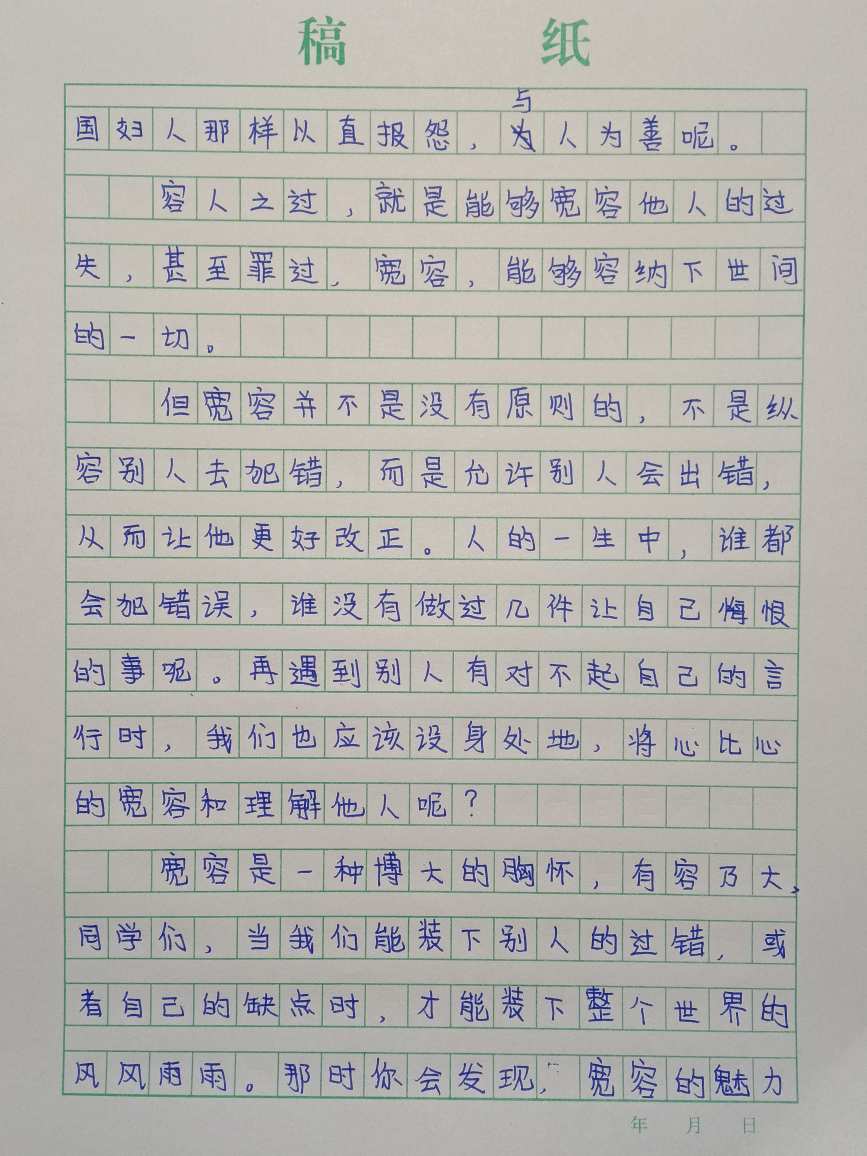 稿 纸
国妇人那样以直报怨，与人为善呢。
容人之过，就是能够宽容他人的过
失，甚至罪过，宽容，能够容纳下世间
的一切。
但宽容并不是没有原则的，不是纵
容别人去犯错，而是允许别人会出错，
从而让他更好改正。人的一生中，谁都
会犯错误，谁没有做过几件让自己悔恨
的事呢。再遇到别人有对不起自己的言
行时，我们也应该设身处地，将心比心
的宽容和理解他人呢？
宽容是一种博大的胸怀，有容乃大、
同学们，当我们能装下别人的过错，或
者自己的缺点时，才能装下整个世界的
风风雨雨。那时你会发现，宽容的魅力
年 月 日